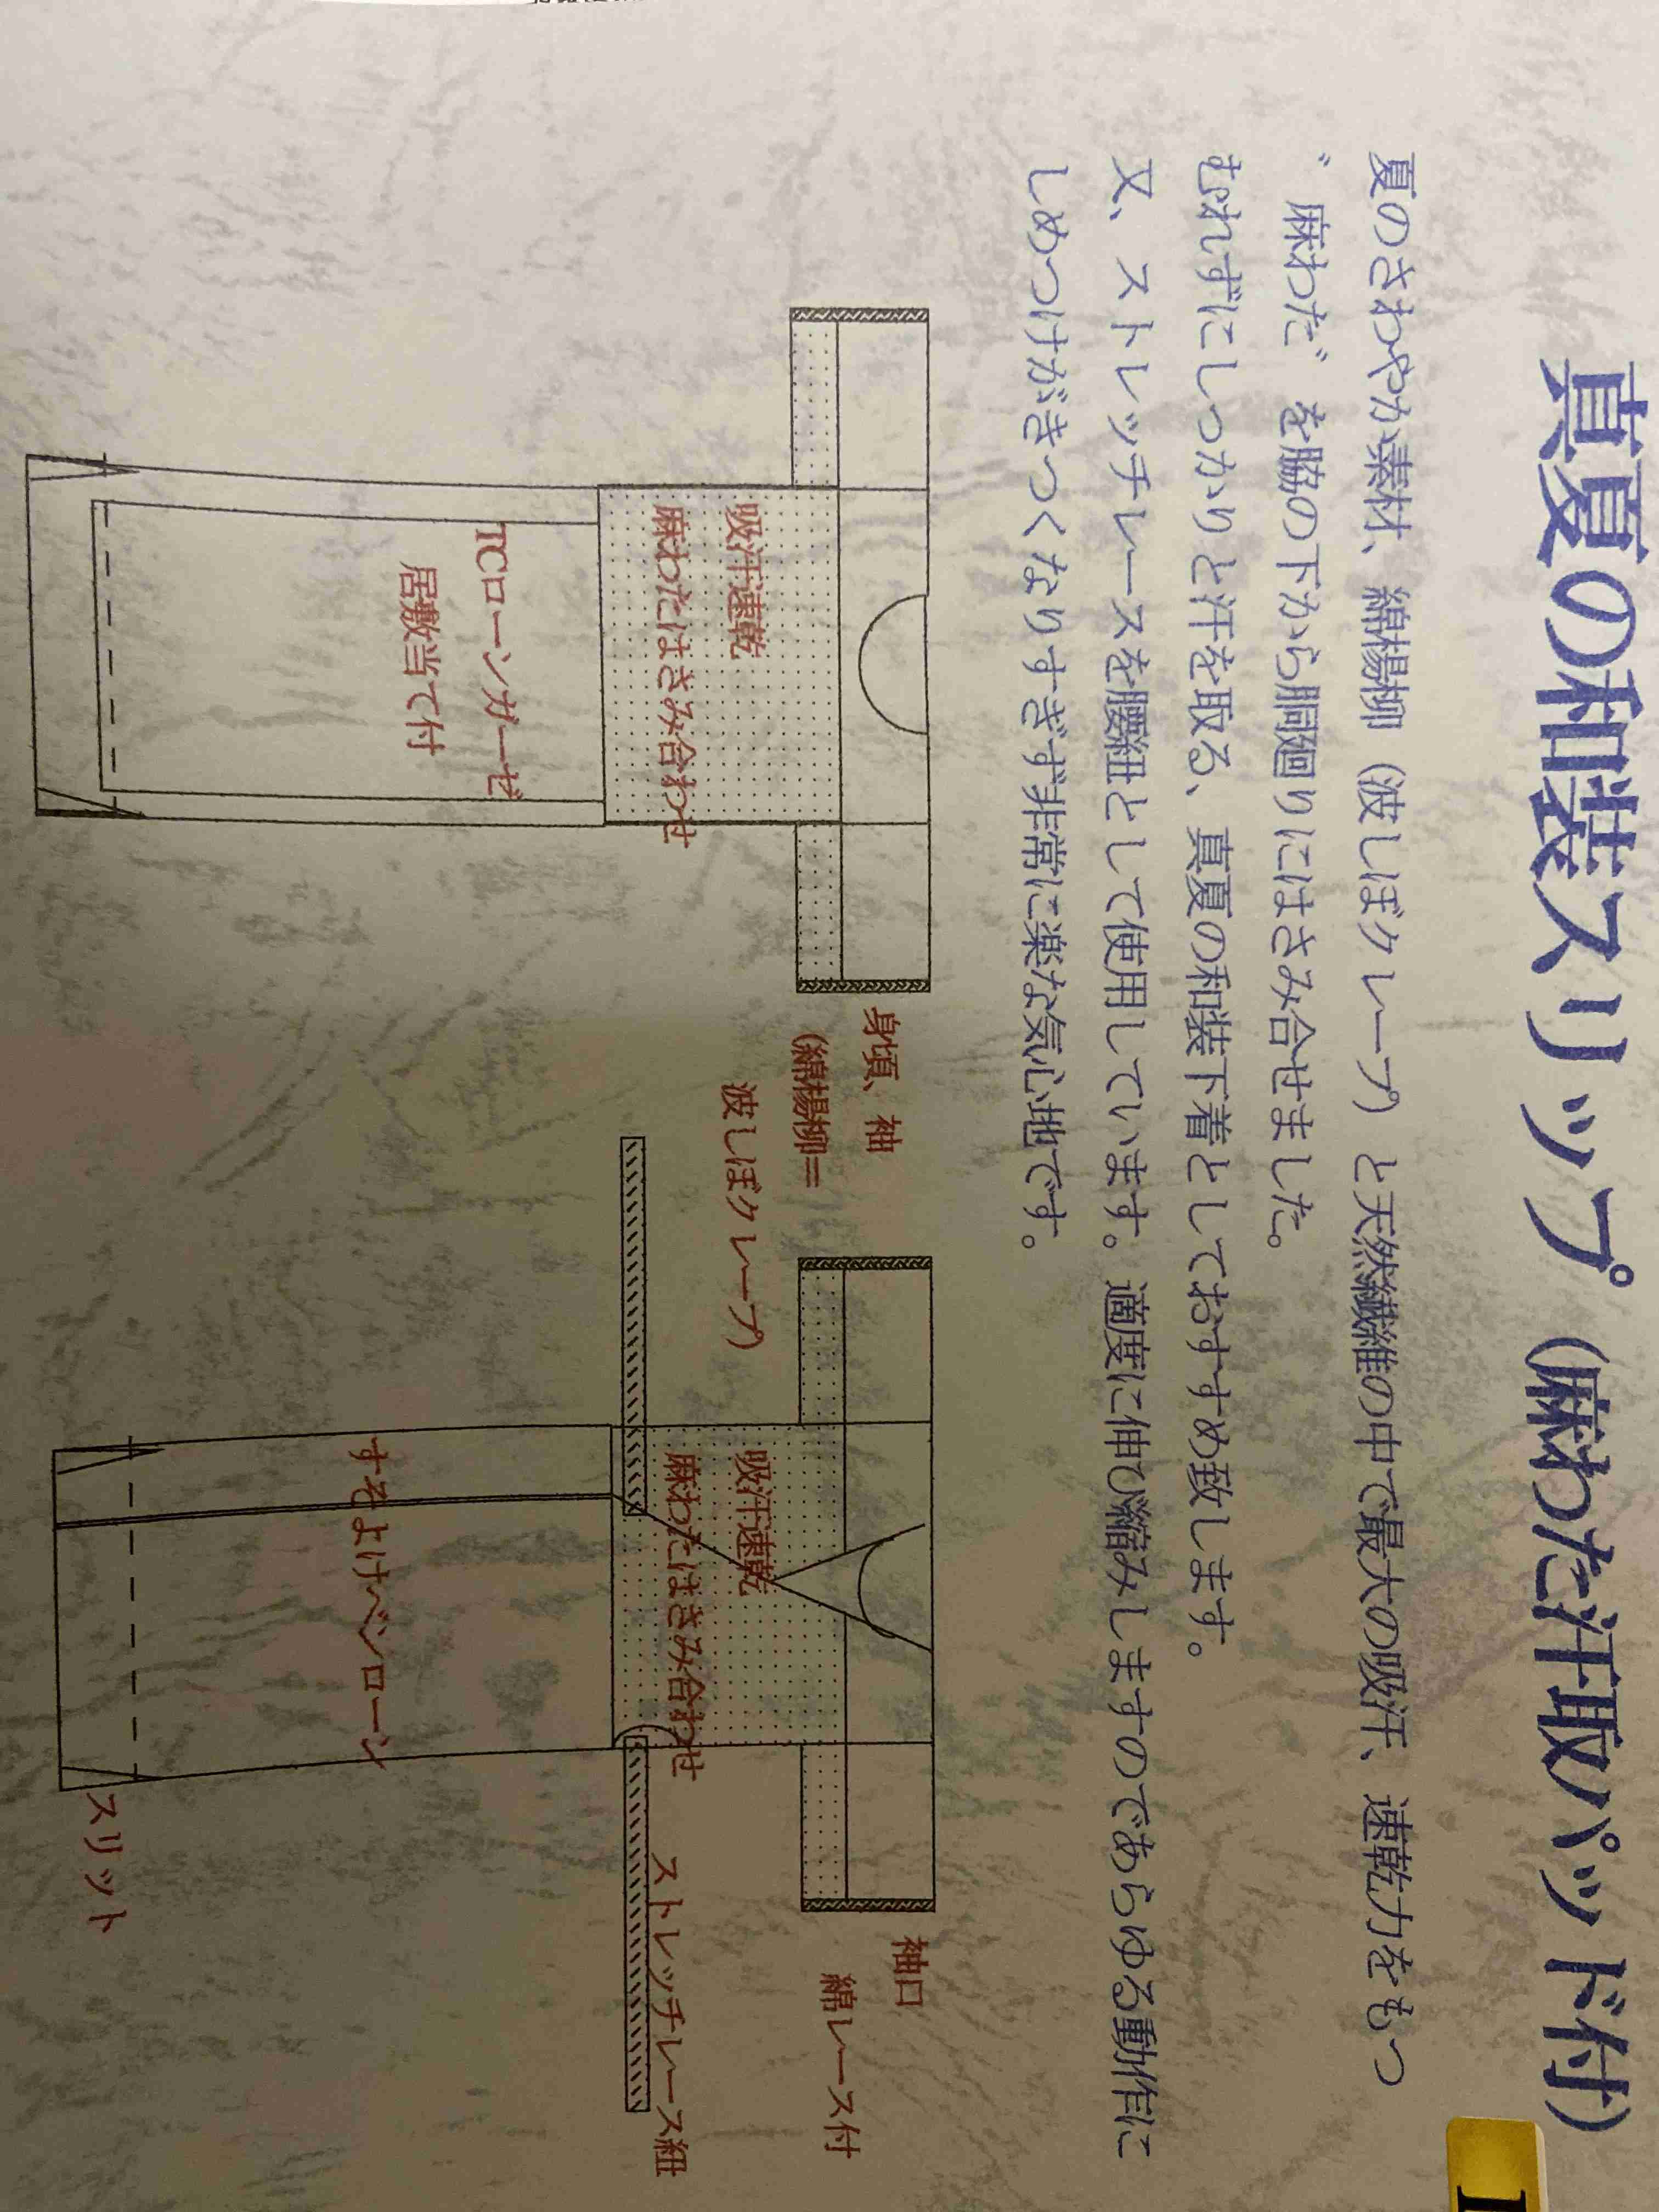 真夏の和装スリップ（麻わた汗取パッド付）
夏のさわやか素材、綿楊柳（波しぼクレープ）と天然繊維の中で最大の吸汗、速乾力をもつ
〝麻わた〟を脇の下から胴廻りにはさみ合せました。
むれずにしっかりと汗を取る、真夏の和装下着としておすすめ致します。
又、ストレッチレースを腰紐として使用しています。適度に伸び縮みしますのであらゆる動作に
しめつけがきつくなりすぎず非常に楽な気心地です。
吸汗速乾
麻わたはさみ合わせ
TCローンガーゼ
居敷当て付
身頃、袖
(綿楊柳＝
波しぼクレープ)
吸汗速乾
麻わたはさみ合わせ
すそよけベンローン
袖口
綿レース付
ストレッチレース紐
スリット